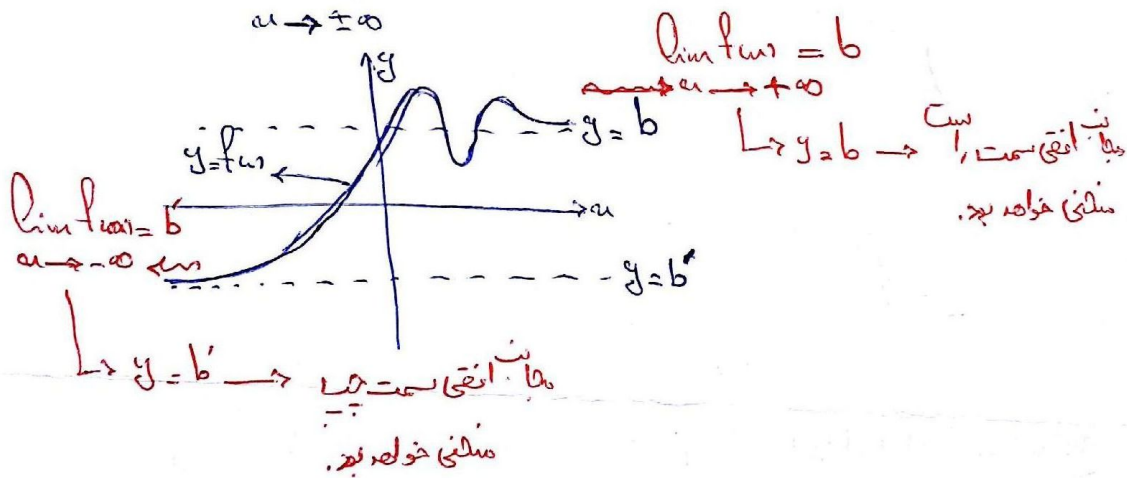 x → ±∞
y
lim f(x) = b
x → +∞
y = b
↳ y = b → مجانب افقی سمت راست
منحنی خواهد بود.
y = f(x)
x
lim f(x) = b′
x → -∞
y = b′
↳ y = b′ → مجانب افقی سمت چپ
منحنی خواهد بود.